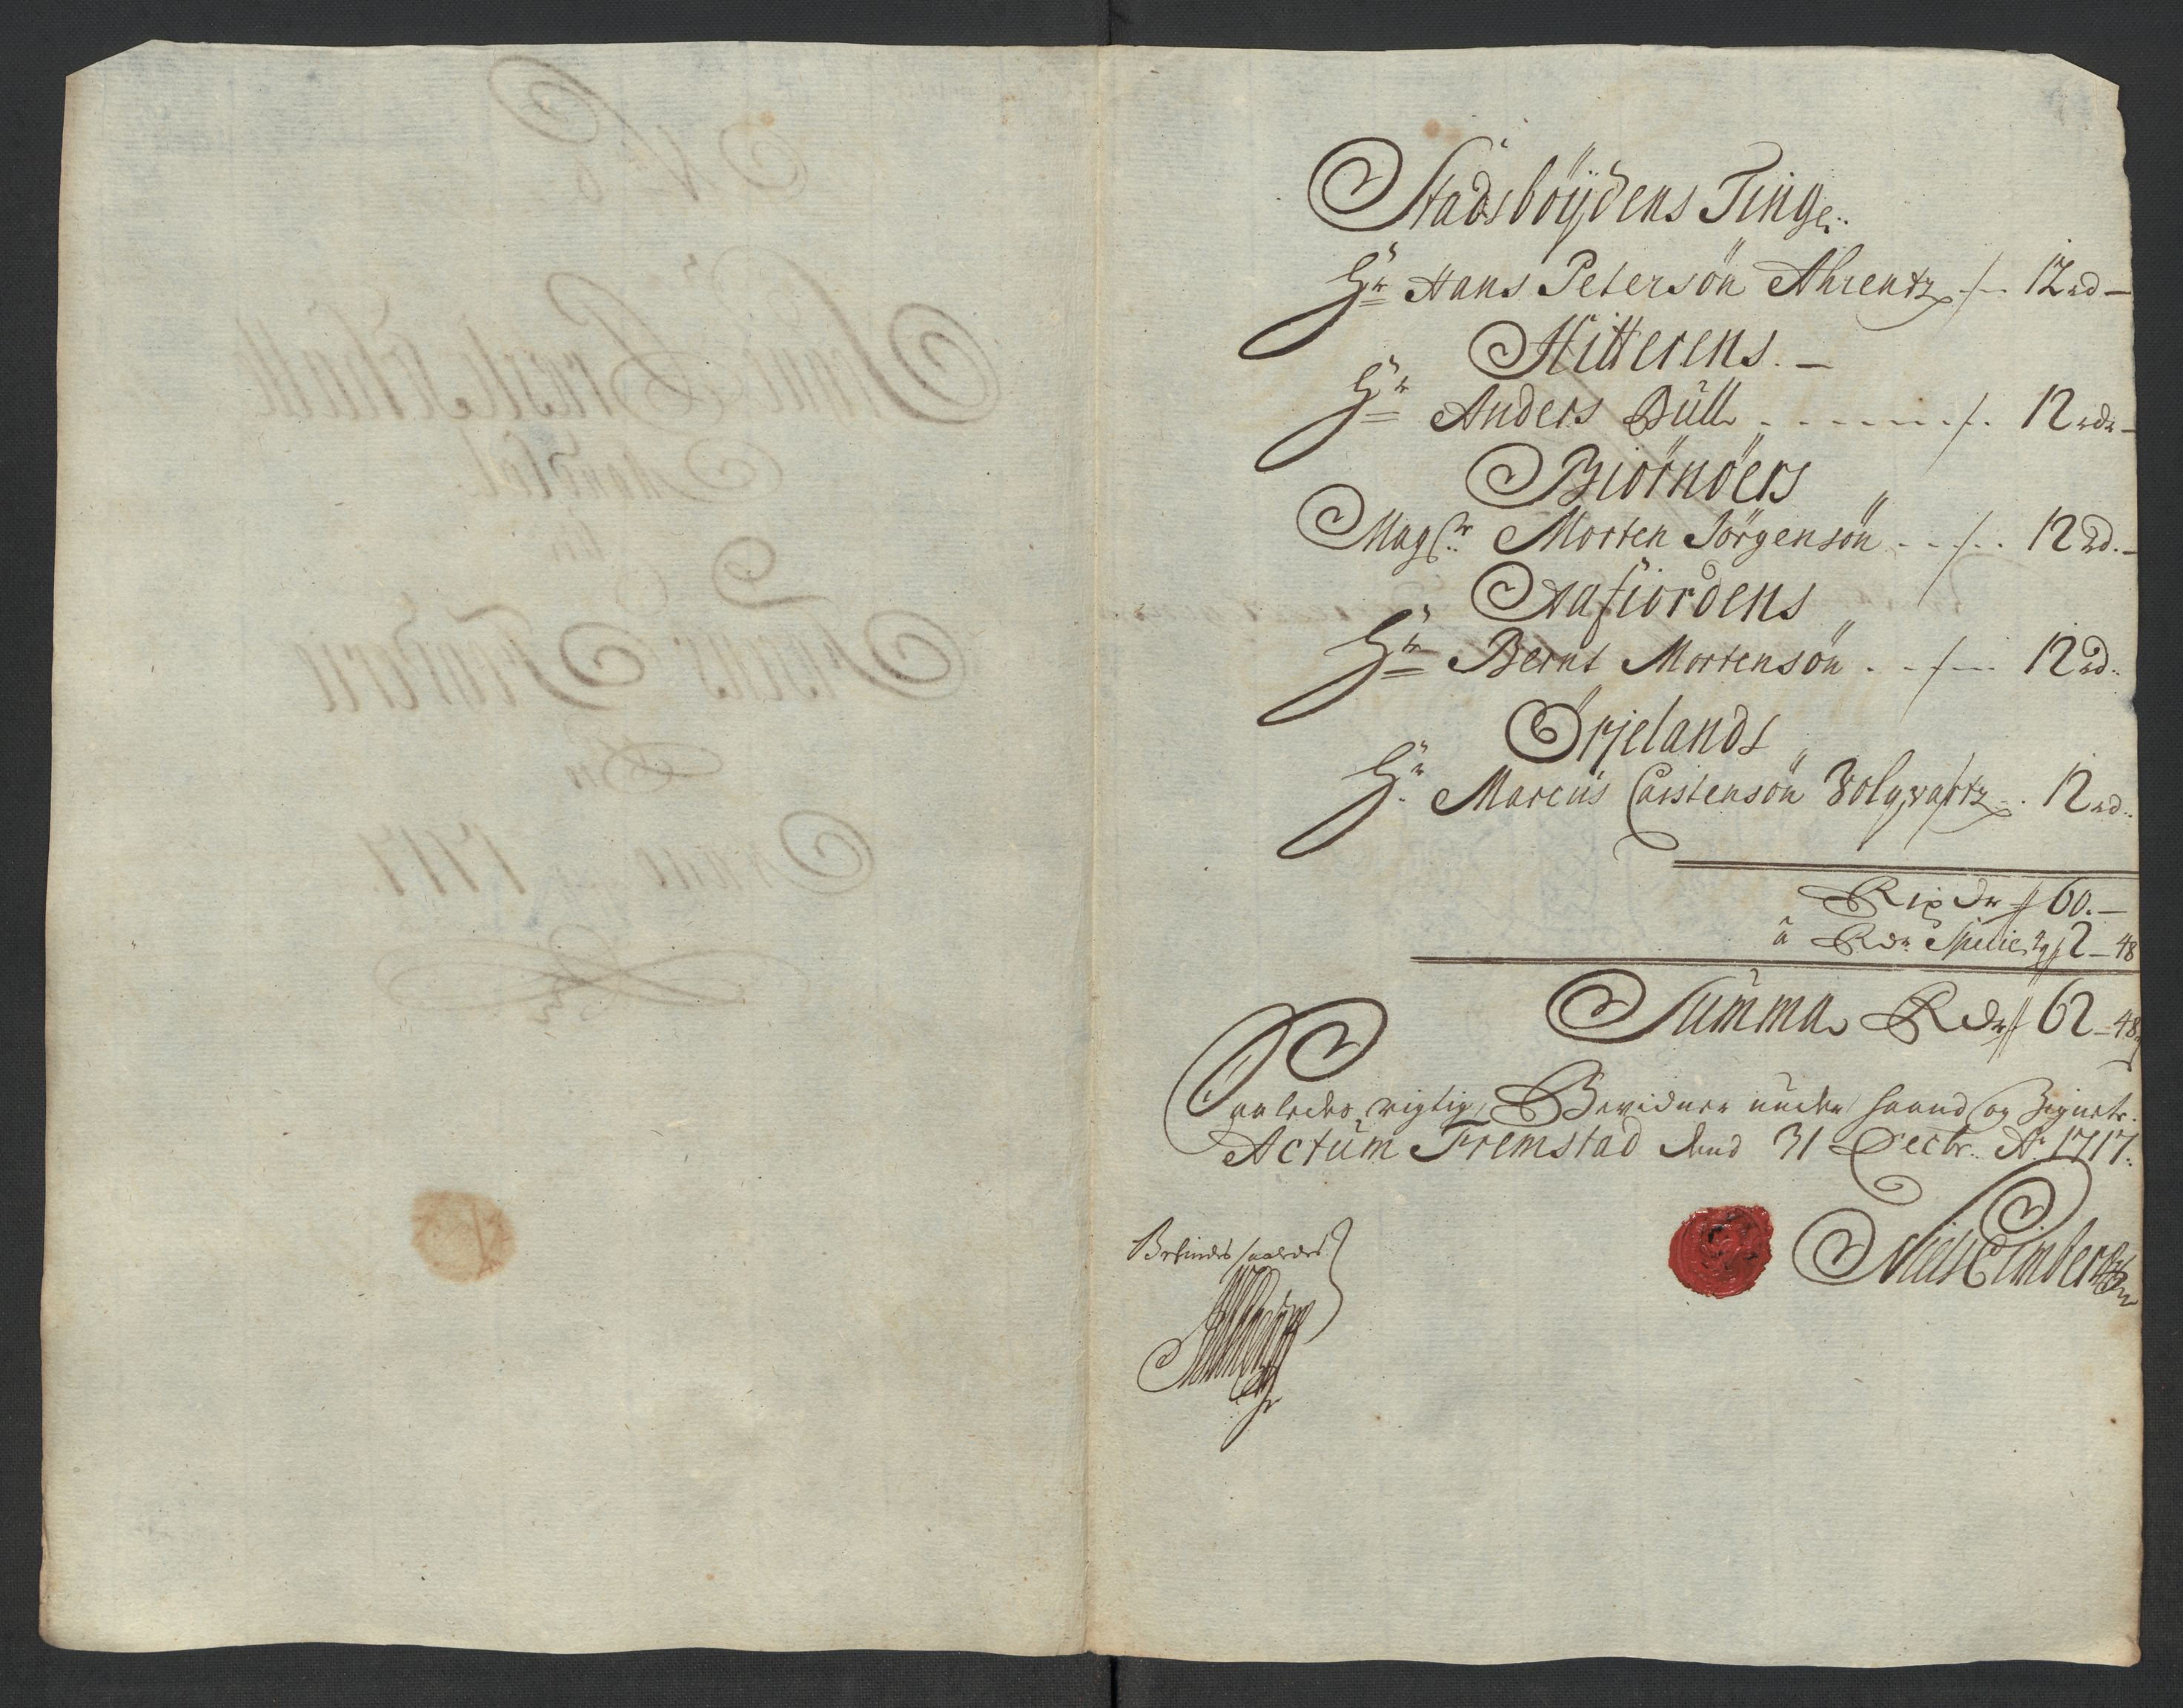 Stadsböÿdens Tinge..
Hr Hans Petersön Ahrentz 12 rd
Hitterens.
Hr Anders Büll 12 rdr
Biörnöers
Magr. Morten Jörgensön 12 rd.
Aafiordens
Hr Bernt Mortensön 12 rd.
Ørjelands
Hr. Marcus Carstensön Volqvartz 12 rd.
Rixdr 60.
â Rdr. Specie 2 48
Summa Rdr 62 48
Saaledes rigtig, Bevidner under haand og Zignete.
Actum Fremstad dend 31 Decbr. Ao 1717.
Befindes saaledes
Niels Eimber